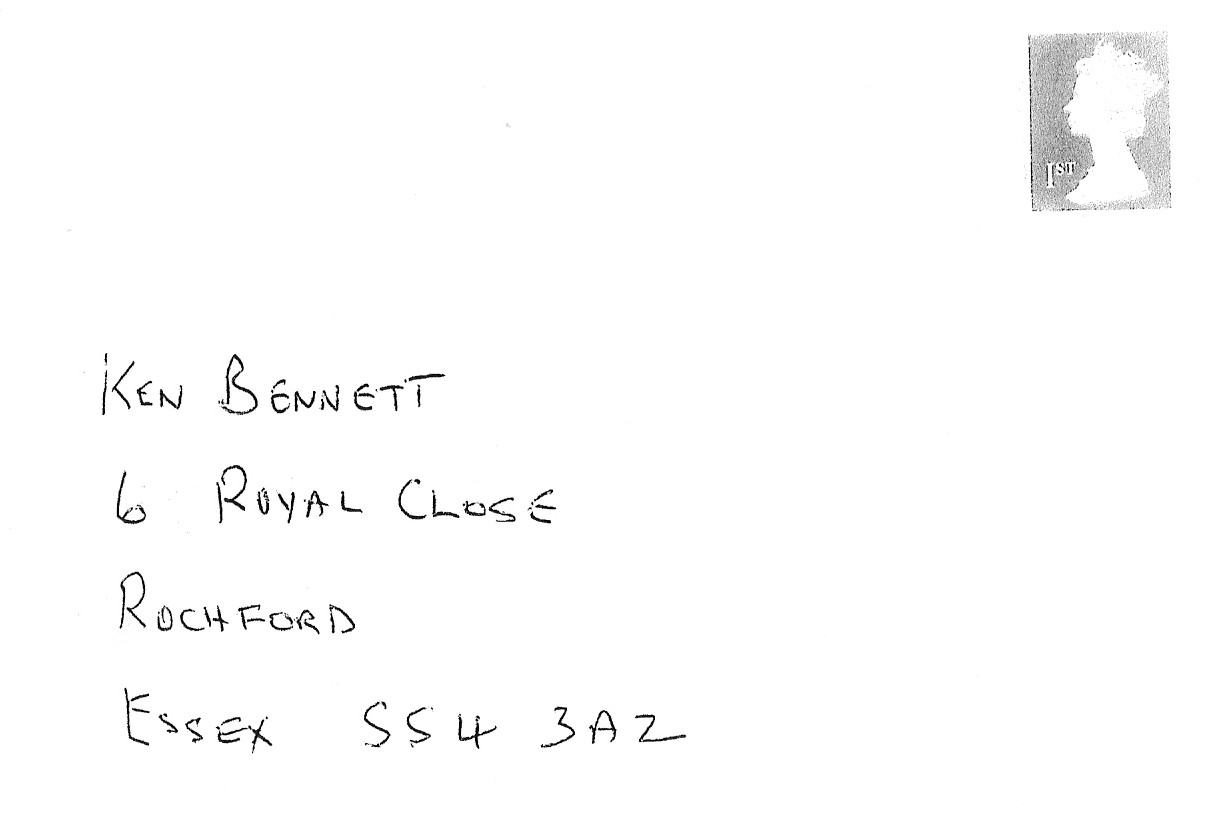 1ST
KEN BENNETT
6 ROYAL CLOSE
ROCHFORD
ESSEX SS4 3AZ